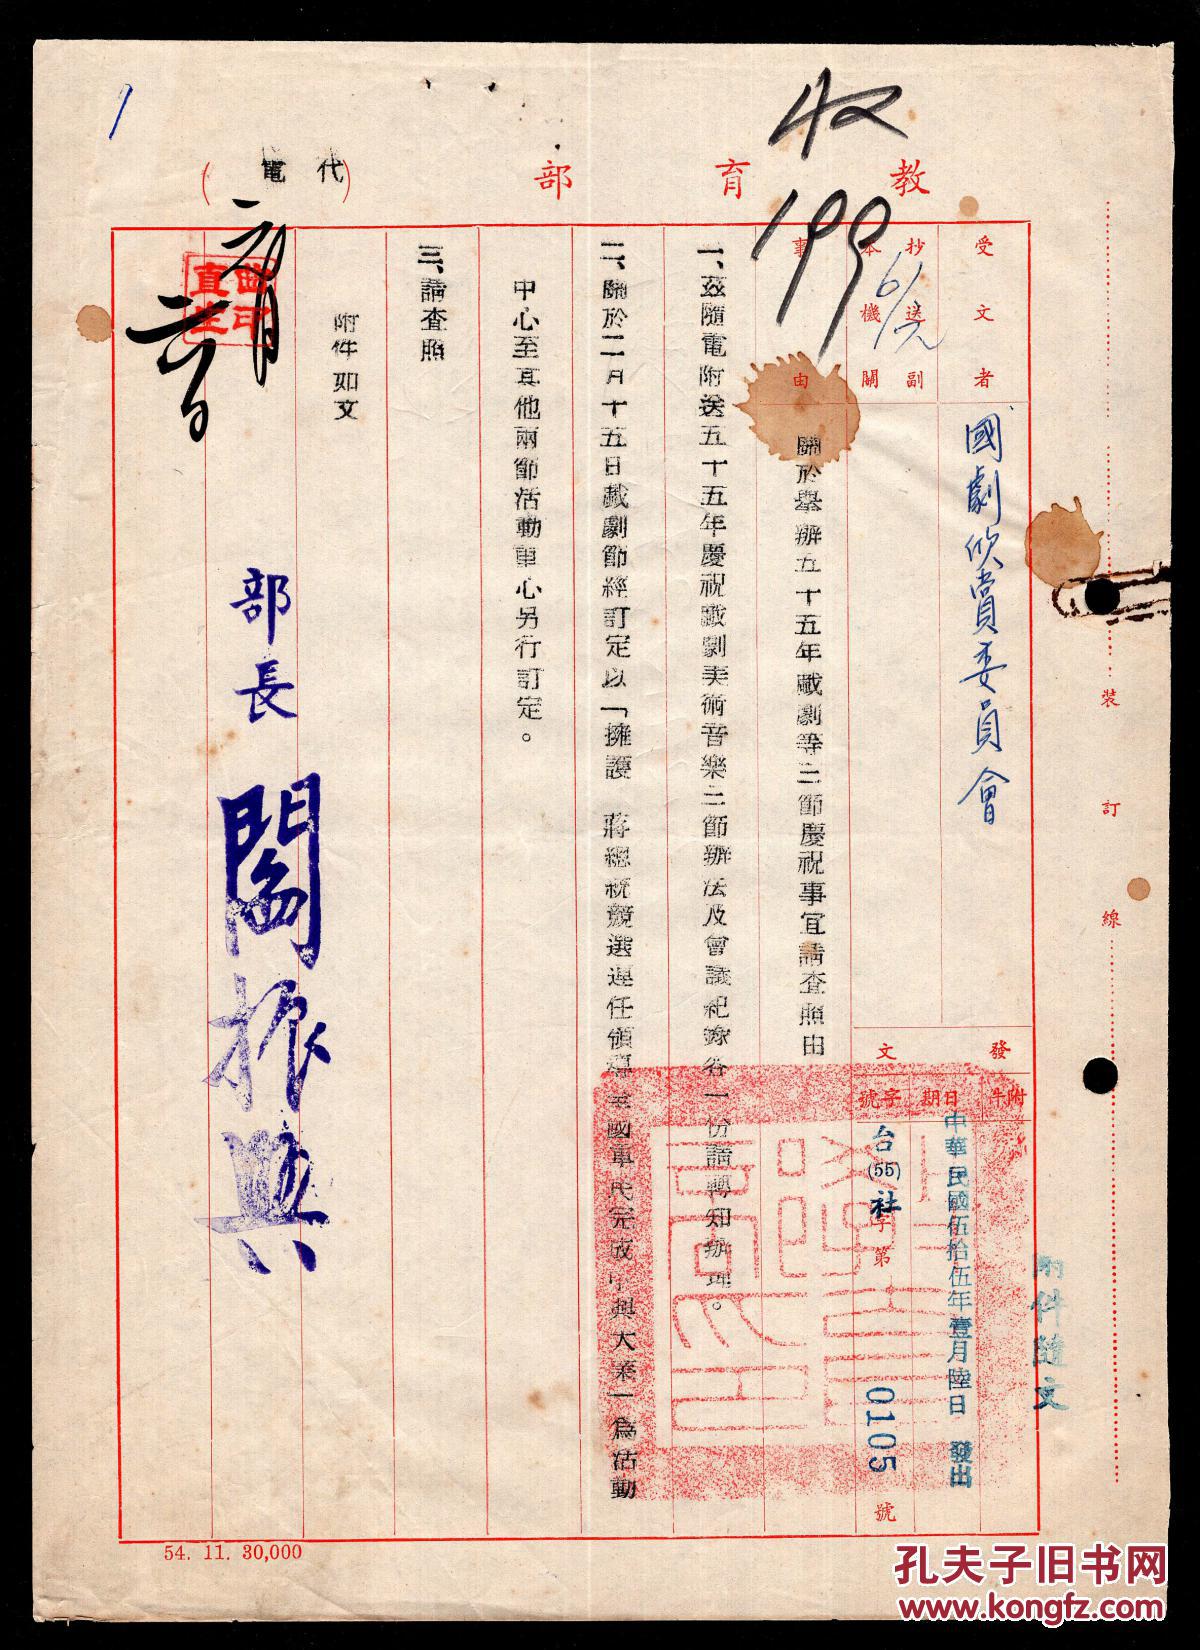 教育部(代電)
收
199
6/元
1
受文者
國劇欣賞委員會
抄送副
本機關
發文
附件
日期
字號
中華民國伍拾伍年壹月陸日 發出
台(55)社字第0105號
附件隨文
事由
關於舉辦五十五年戲劇等三節慶祝事宜請查照由
一、茲隨電附送五十五年慶祝戲劇美術音樂三節辦法及會議紀錄各一份請轉知辦理。
二、關於二月十五日戲劇節經訂定以「擁護 蔣總統競選連任領導全國軍民完成中興大業」為活動
中心至其他兩節活動重心另行訂定。
三、請查照
附件如文
部長 閻振興
裝訂線
54. 11. 30,000
孔夫子旧书网
www.kongfz.com